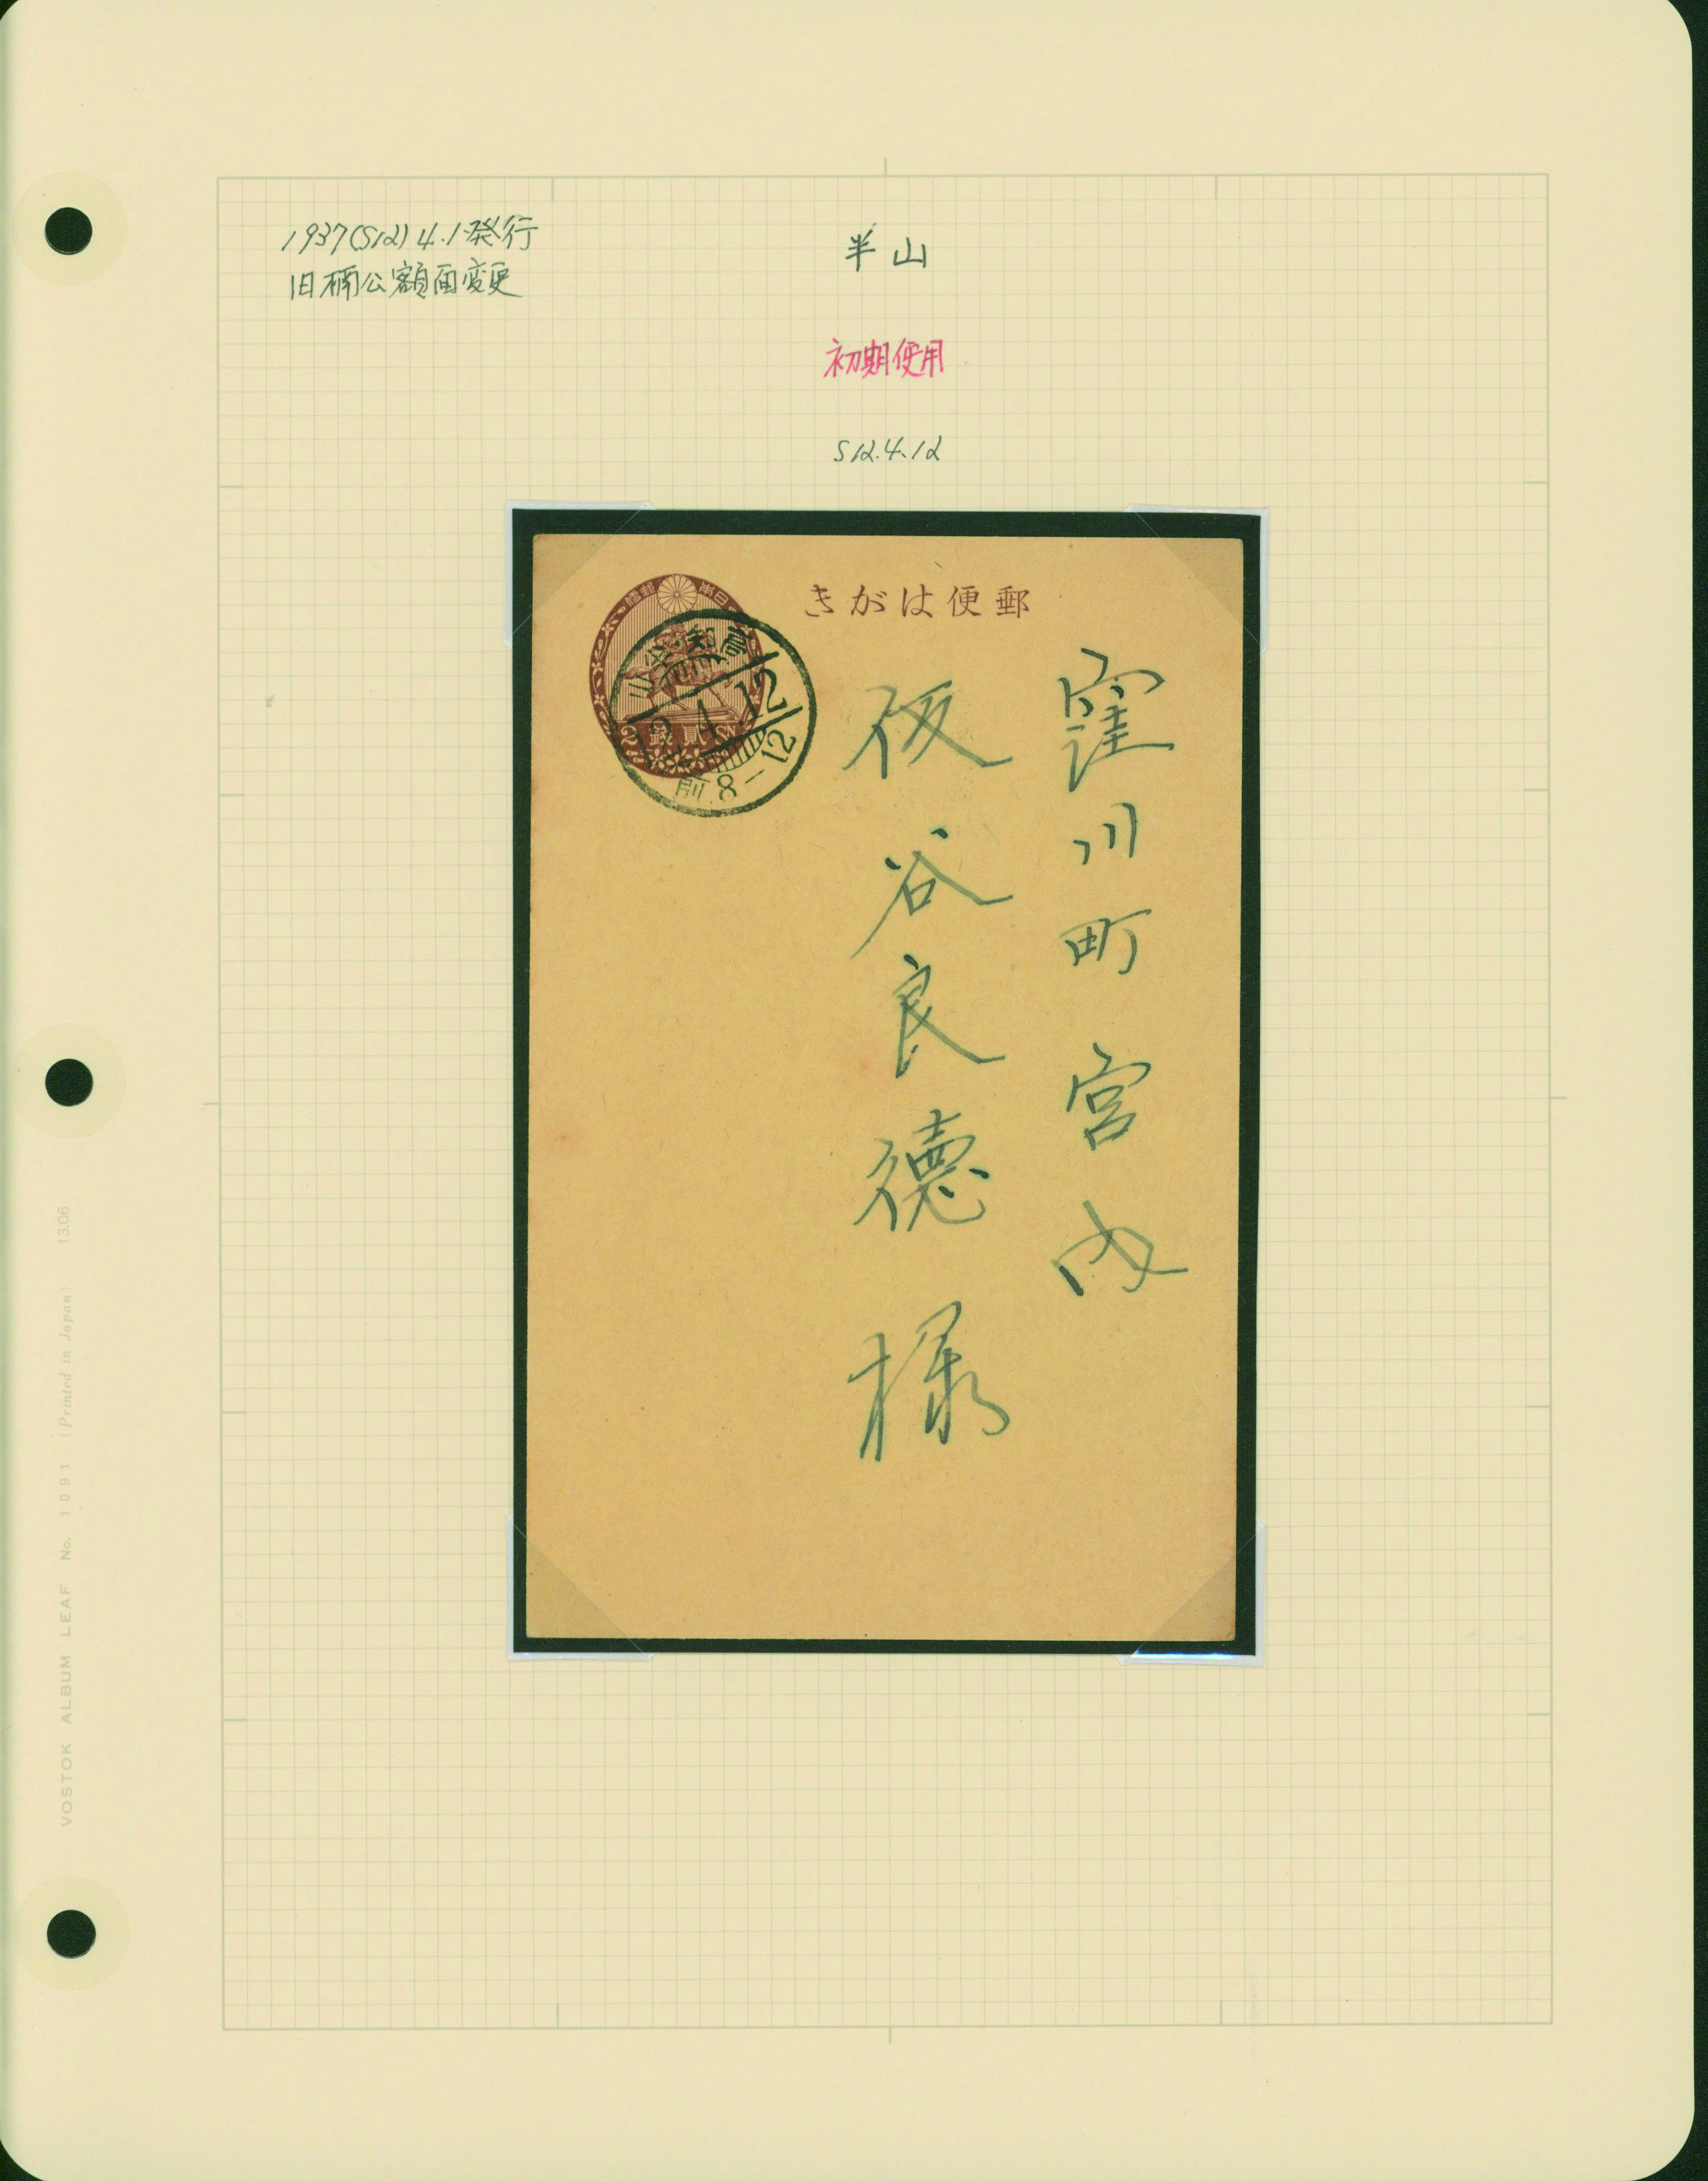 1937(S12)4.1発行
旧楠公額面変更
半山
初期使用
S12.4.12
きがは便郵
日本
郵便
貳
錢
2
12.4.12
前8-12
窪川町 宮内
仮谷良徳 様
VOSTOK ALBUM LEAF No. 1091 (Printed in Japan) 13.06